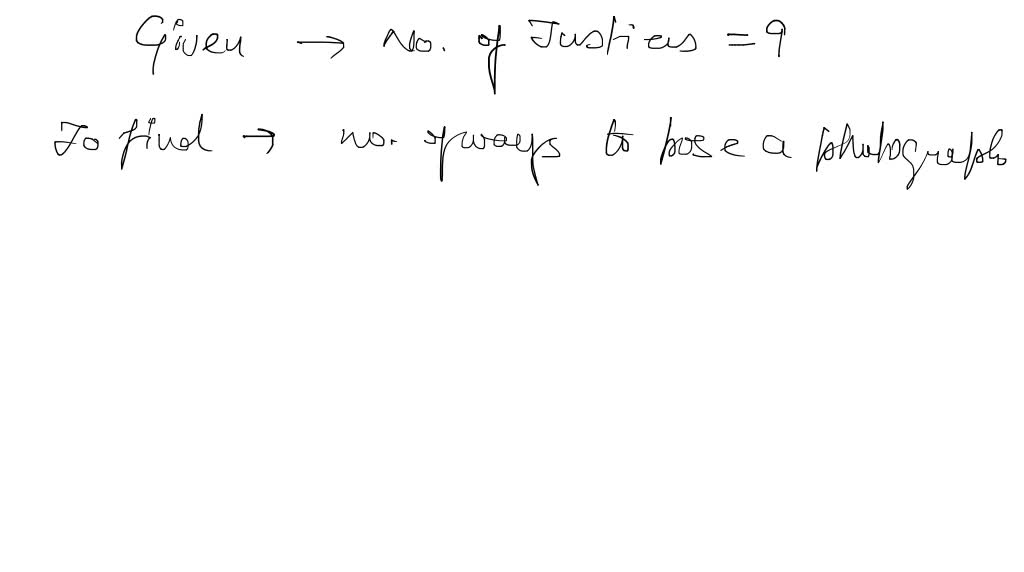 Given → No. of Justices = 9
To find → no. of ways to pose a photograph